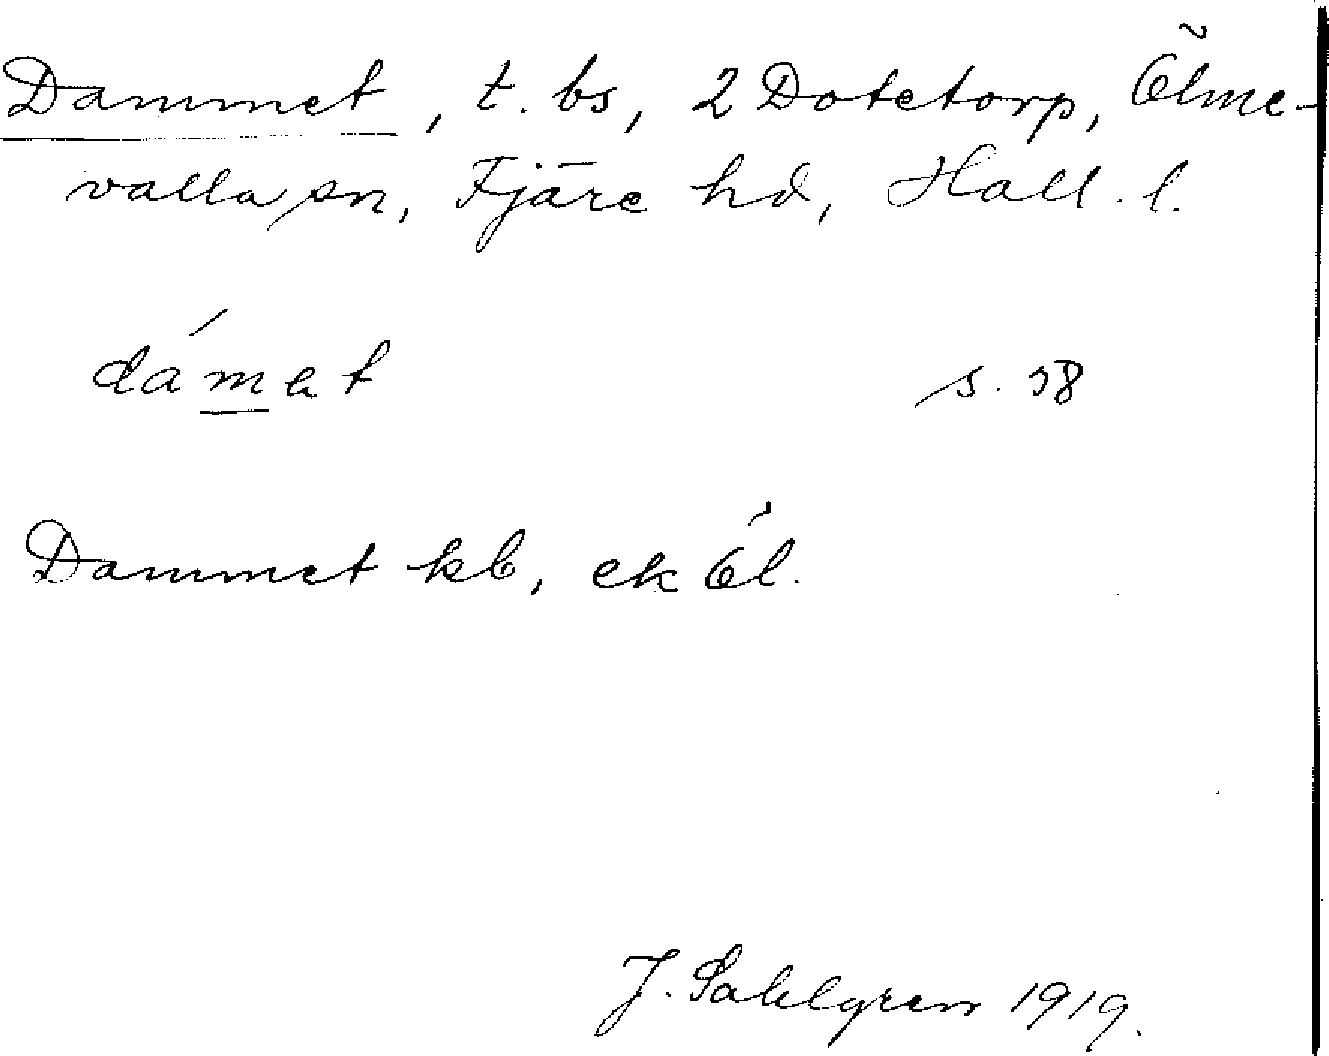 Dammet, t. bs, 2 Dotetorp, Ölme-
valla sn, Fjäre hd, Hall. l.
dámat s. 58
Dammet kb, ek Öl.
J. Sahlgren 1919.